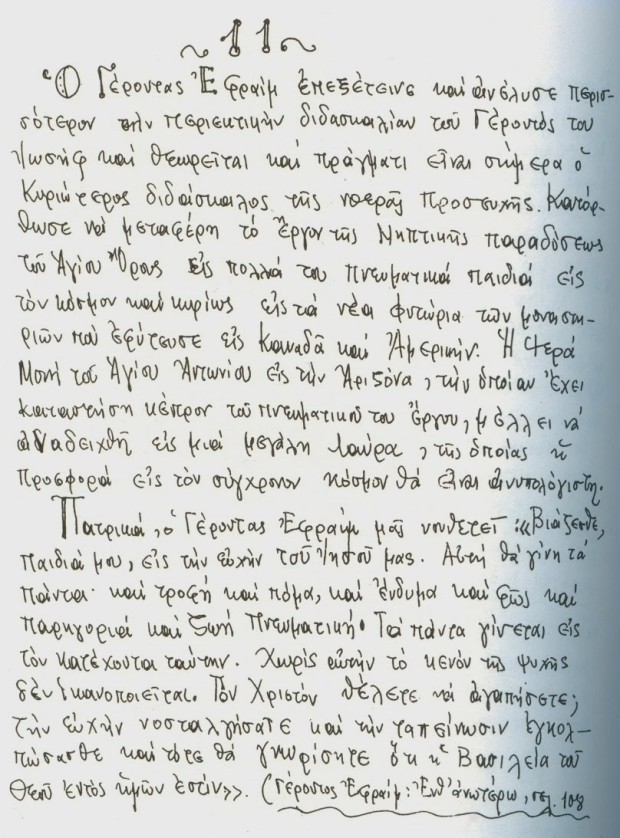 11
Ὁ Γέροντας Ἐφραίμ ἐπεξέτεινε καί ἀνέλυσε περισ-
σότερον τήν περιεκτικήν διδασκαλίαν τοῦ Γέροντός του
Ἰωσήφ καί θεωρεῖται καί πράγματι εἶναι σήμερα ὁ
Κυριώτερος διδάσκαλος τῆς νοερᾶς προσευχῆς. Κατόρ-
θωσε νά μεταφέρη τό ἔργον τῆς Νηπτικῆς παραδόσεως
τοῦ Ἁγίου Ὄρους εἰς πολλά του πνευματικά παιδιά εἰς
τόν κόσμον καί κυρίως εἰς τά νέα φυτώρια τῶν μοναστη-
ριῶν πού ἐφύτευσε εἰς Καναδᾶ καί Ἀμερικήν. Ἡ Ἱερά
Μονή τοῦ Ἁγίου Ἀντωνίου εἰς τήν Ἀριζόνα, τήν ὁποίαν ἔχει
καταστήση κέντρον τοῦ πνευματικοῦ του ἔργου, μέλλει νά
ἀναδειχθῆ εἰς μιά μεγάλη Λαύρα, τῆς ὁποίας ἡ
προσφορά εἰς τόν σύγχρονον κόσμον θά εἶναι ἀνυπολόγιστη.
Πατρικά, ὁ Γέροντας Ἐφραίμ μᾶς νουθετεῖ: «Βιάζεσθε,
παιδιά μου, εἰς τήν εὐχήν τοῦ Ἰησοῦ μας. Αὐτή θά γίνη τά
πάντα· καί τροφή καί πόμα, καί ἔνδυμα καί φῶς καί
παρηγοριά καί ζωή Πνευματική. Τά πάντα γίνεται εἰς
τόν κατέχοντα ταύτην. Χωρίς αὐτήν τό κενόν τῆς ψυχῆς
δέν ἱκανοποιεῖται. Τόν Χριστόν θέλετε νά ἀγαπήσετε;
τήν εὐχήν νοσταλγήσατε καί τήν ταπείνωσιν ἐγκολ-
πώσασθε καί τότε θά γνωρίσητε ὅτι ἡ Βασιλεία τοῦ
Θεοῦ ἐντός ἡμῶν ἐστίν». (Γέροντος Ἐφραίμ: Ἐνθ' ἀνωτέρω, σελ. 108